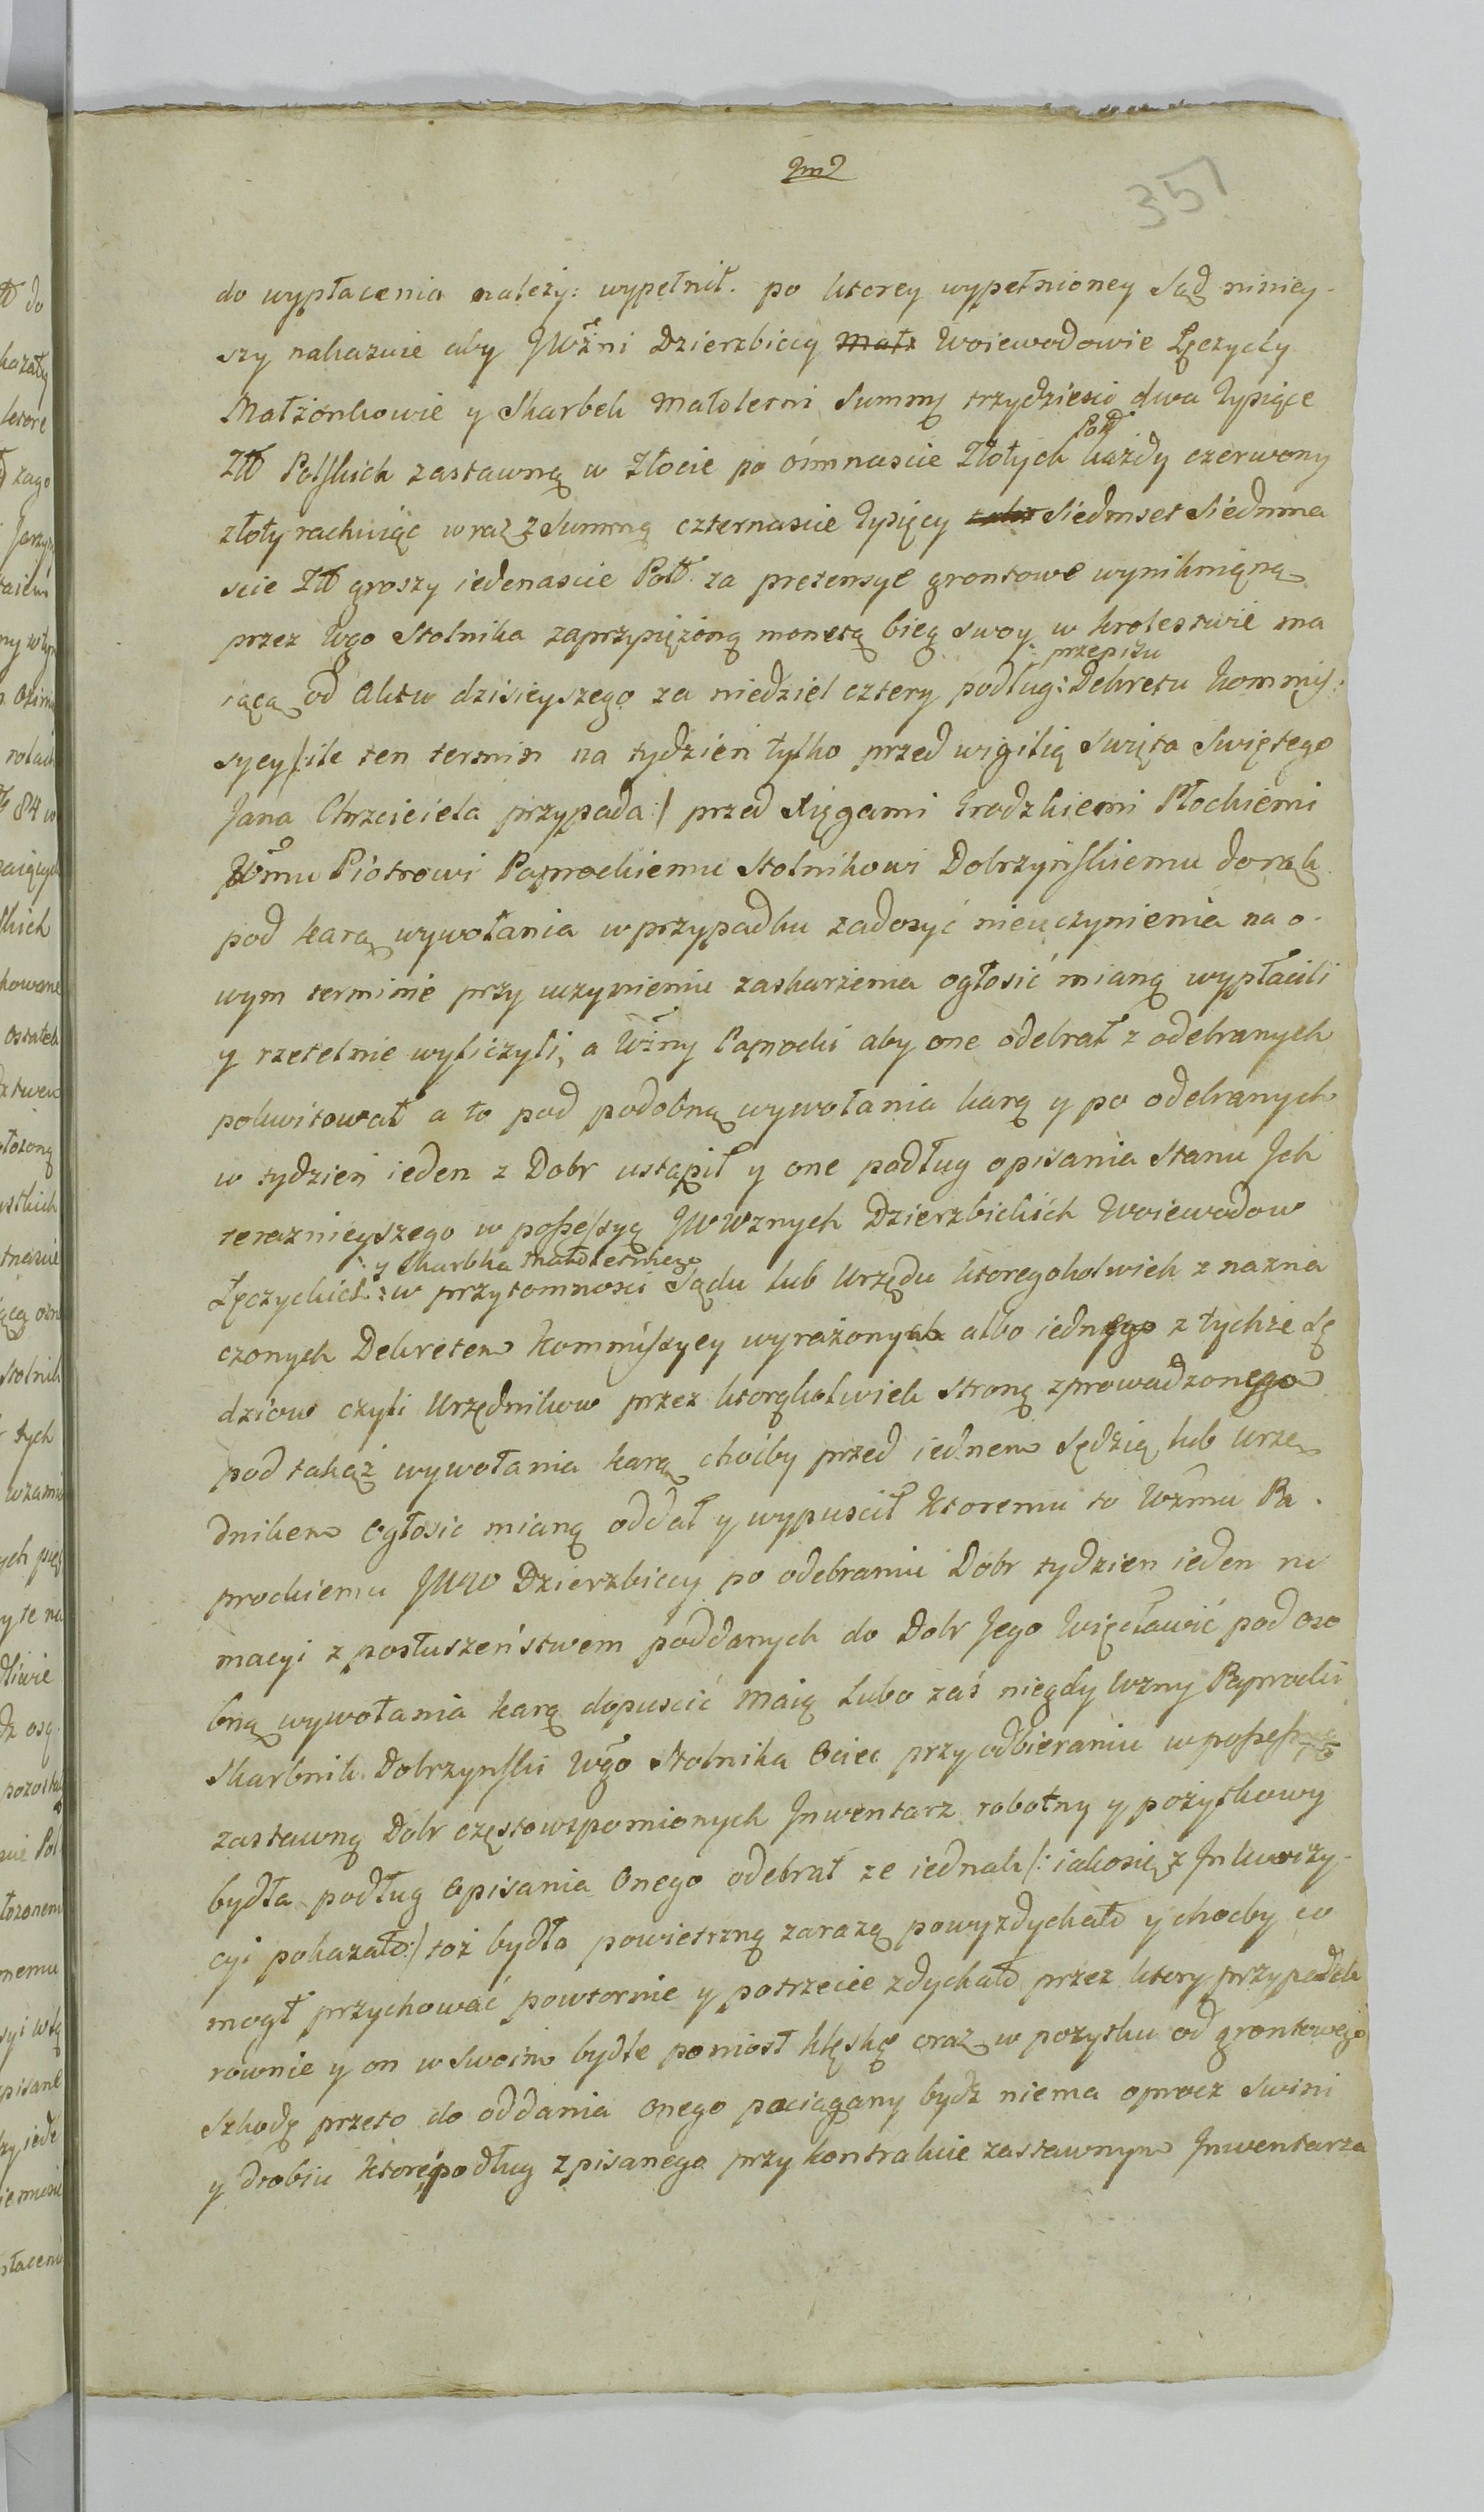 351
do wypłacenia należy: wypełnił. po ktorey wypełnioney Sąd niniey-
szy nakazuie aby JWżni Dzierzbiccy Małż Woiewodowie Łęczyccy
Małżonkowie y Skarbek Małoletni Summę trzydziesci dwa Tysiące
Złł Polskich zastawną w Złocie po ośmnascie Złotych Poll każdy czerwony
złoty rachuiąc wraz z Summą czternascie Tysięcy Siedmset Siedmna
scie Złł groszy iedenascie Poll. za pretensye grontowe wynikniąną
przez Wgo Stolnika zaprzysiężoną monetą bieg swoy w krolestwie ma
iącą od Aktu dzisieyszego za niedziel cztery podług: przepisu Dekretu Kommis:
syey /:ile ten termin na tydzień tylko przed wigilią Swięta Swiętego
Jana Chrzciciela przypada:/ przed Xięgami Grodzkiemi Płockiemi
Wmu Piotrowi Paprockiemu Stolnikowi Dobrzyńskiemu do rąk
pod karą wywołania w przypadku zadosyć nieuczynienia na o-
wym terminie przy uczynieniu zaskarżenia ogłosić mianą wypłacili
y rzetelnie wyliczyli, a Wżny Paprocki aby one odebrał z odebranych
pokwitował a to pod podobną wywołania karą y po odebranych
w tydzień ieden z Dobr ustąpił y one podług opisania Stanu Jch
teraznieyszego w possessyą JWWznych Dzierzbickich Woiewodow
Łęczyckich: y Skarbka Małoletniego :w przytomnosci Sądu lub Urzędu ktoregokolwiek z nazna
czonych Dekretem Kommissyey wyrażonych albo iednego z tychże Sę
dziow czyli Urzędnikow przez którąkolwiek stronę zprowadzonego
pod takąż wywołania karą choćby przed iednem Sędzią lub Urzę
dnikem Ogłosic mianą oddał y wypuscił ktoremu to Wżmu Pa-
prockiemu JWW Dzierzbiccy po odebraniu Dobr tydzien ieden ru
macyi z posłuszeństwem poddanych do Dobr Jego Więcławić pod oso
bną wywołania karą dopuscić maią Lubo zaś niegdy Wzny Paprocki
Skarbnik Dobrzynski Wgo Stolnika Ociec przy odbieraniu w possessyą
zastawną Dobr częstowzpomionych Jnwentarz robotny y pożytkowy
bydła podług Opisania Onego odebrał ze iednak /: iakosię z Jnkwizy-
cyi pokazało:/ toż bydło powietrzną zarazą powyzdychało y chocby co
mogł przychować powtornie y potrzecie zdychało przez ktory przypadek
rownie y on w swoim bydle poniosł klęskę oraz w pozytku od grontowego
Szkodę przeto do oddania onego pociągany bydz niema oprocz Swini
y drobiu które podług zpisanego przy kontrakcie zastawnym Jnwentarza